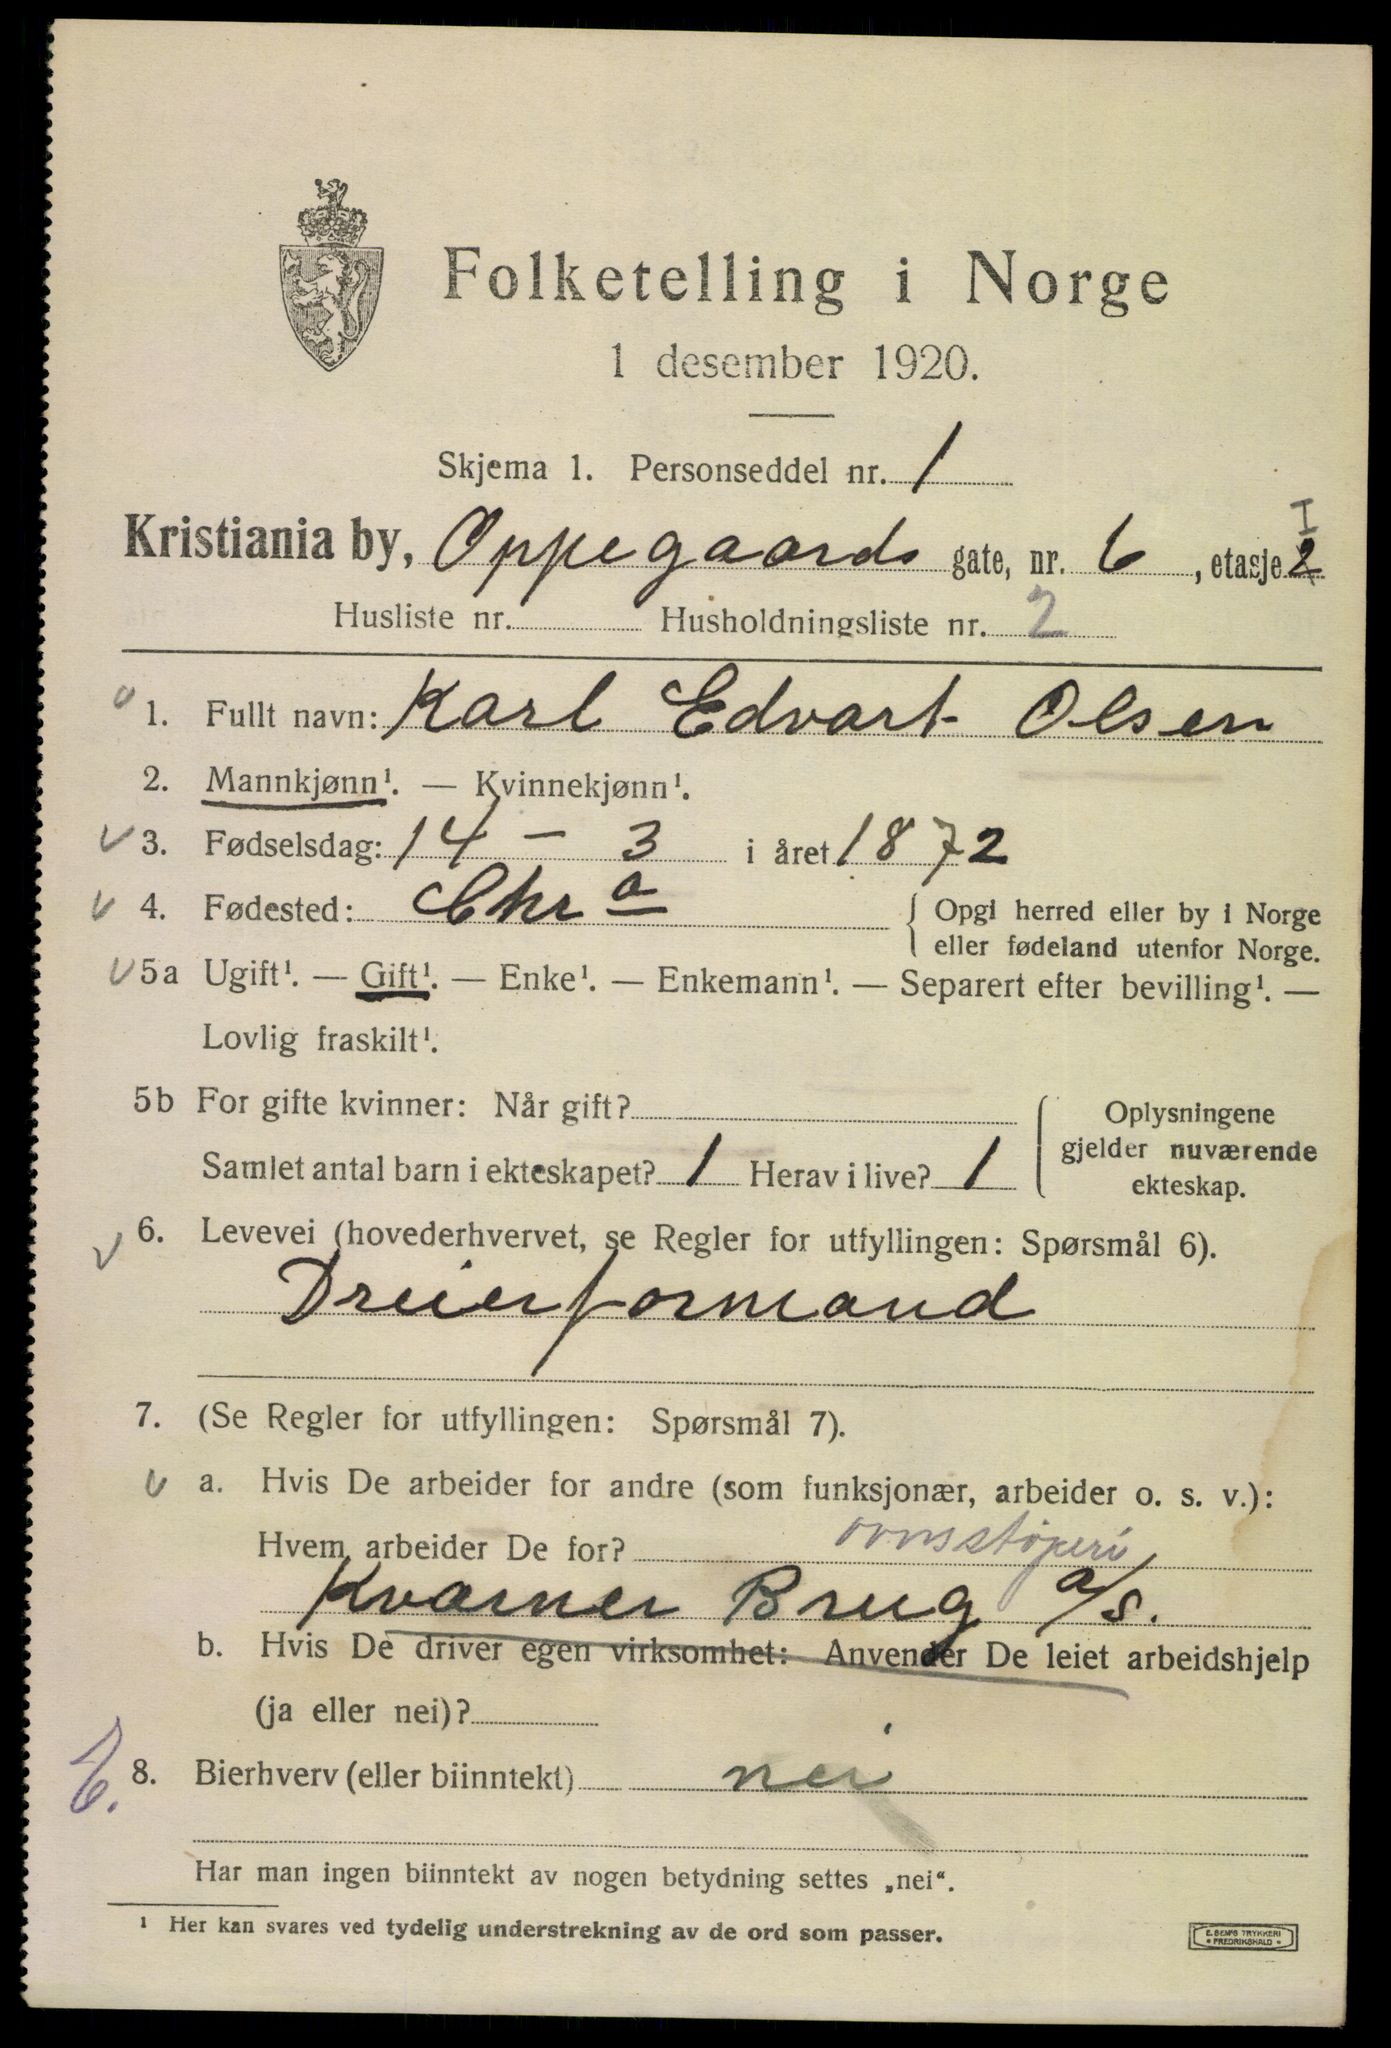 Folketelling i Norge
1 desember 1920.
Skjema 1. Personseddel nr. 1
I
Kristiania by, Oppegaards gate, nr. 6, etasje 2
Husliste nr. Husholdningsliste nr. 2
1. Fullt navn: Karl Edvart Olsen
2. Mannkjønn¹. — Kvinnekjønn¹.
3. Fødselsdag: 14 – 3 i året 1872
4. Fødested: Chr a
Opgi herred eller by i Norge
eller fødeland utenfor Norge.
5a Ugift¹. — Gift¹. — Enke¹. — Enkemann¹. — Separert efter bevilling¹. —
Lovlig fraskilt¹.
5b For gifte kvinner: Når gift?
Samlet antal barn i ekteskapet? 1 Herav i live? 1
Oplysningene
gjelder nuværende
ekteskap.
6. Levevei (hovederhvervet, se Regler for utfyllingen: Spørsmål 6).
Dreierformand
7. (Se Regler for utfyllingen: Spørsmål 7).
a. Hvis De arbeider for andre (som funksjonær, arbeider o. s. v.):
Hvem arbeider De for? ovnsstøperi
Kværner Brug a/s.
b. Hvis De driver egen virksomhet: Anvender De leiet arbeidshjelp
(ja eller nei)?
8. Bierhverv (eller biinntekt) nei
Har man ingen biinntekt av nogen betydning settes „nei“.
¹ Her kan svares ved tydelig understrekning av de ord som passer.
E. SEM'S TRYKKERI
FREDRIKSHALD